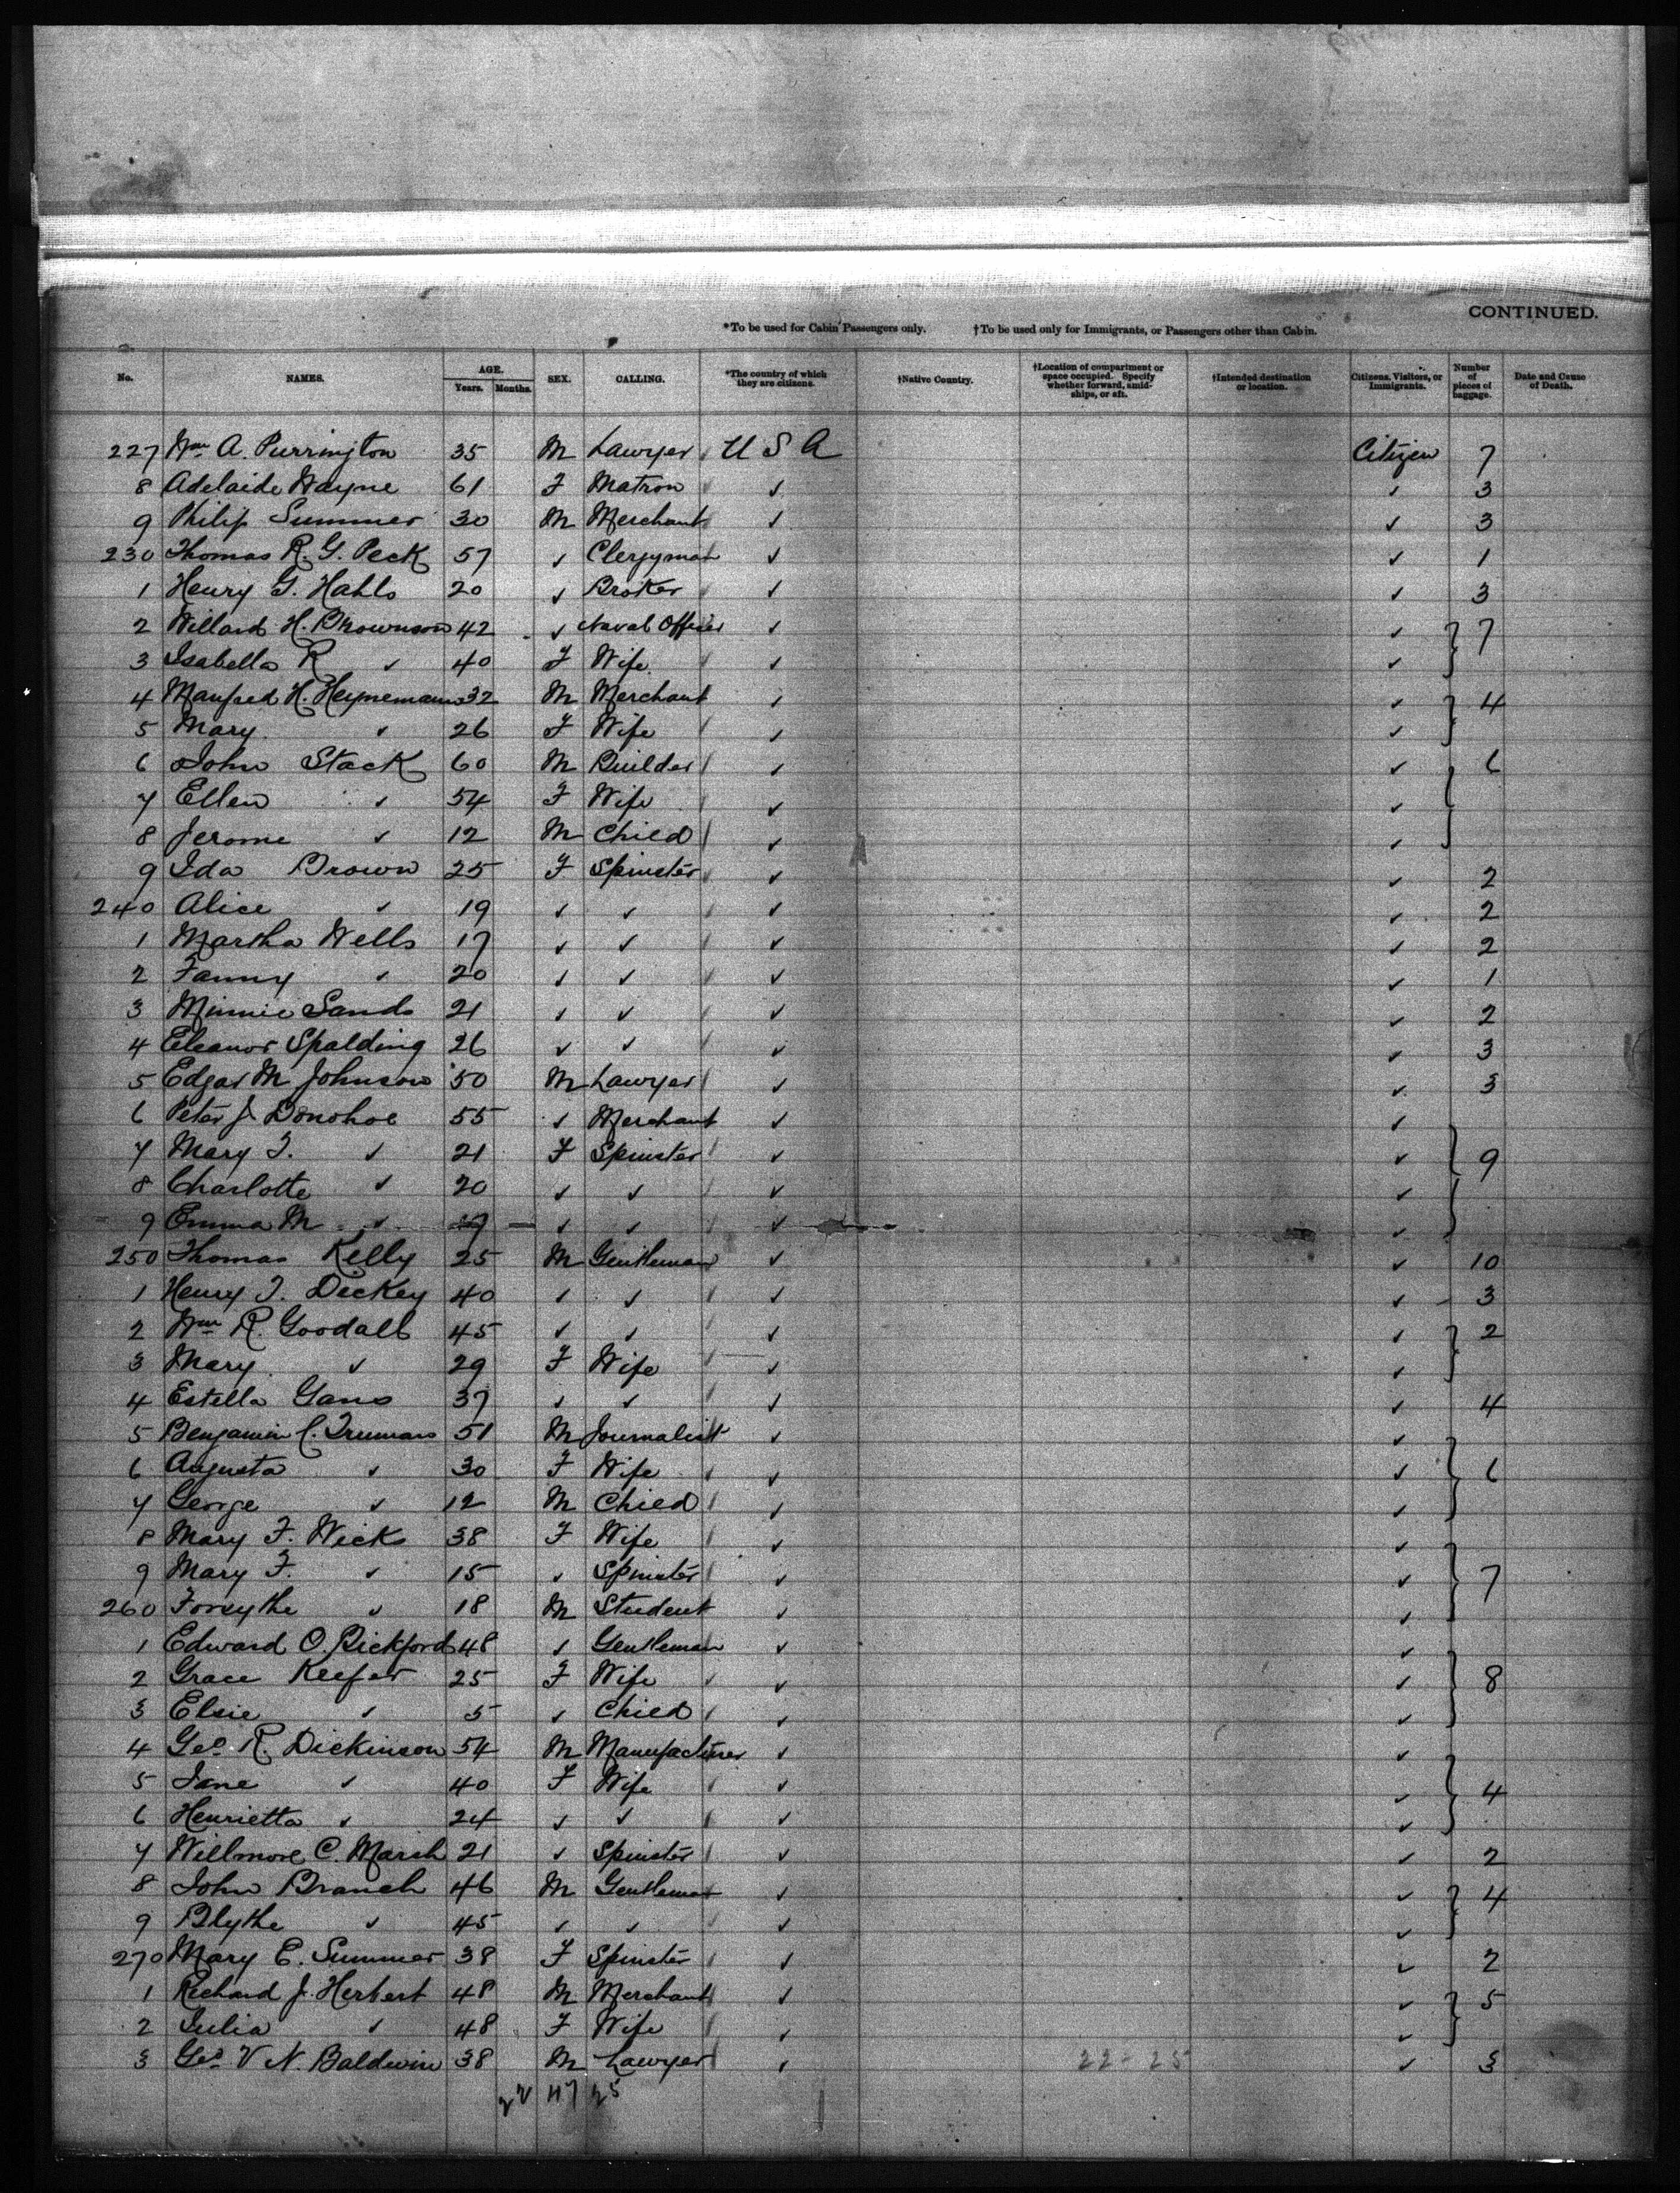 CONTINUED.
*To be used for Cabin Passengers only. †To be used only for Immigrants, or Passengers other than Cabin.
No. NAMES. AGE. Years. Months. SEX. CALLING. *The country of which they are citizens. †Native Country. †Location of compartment or space occupied. Specify whether forward, amidships, or aft. †Intended destination or location. Citizens, Visitors, or Immigrants. Number of pieces of baggage. Date and Cause of Death.
227 Wm A. Purrington 35 M Lawyer U S A Citizen 7
8 Adelaide Wayne 61 F Matron ✓ ✓ 3
9 Philip Summer 30 M Merchant ✓ ✓ 3
230 Thomas R. G. Peck 57 ✓ Clergyman ✓ ✓ 1
1 Henry G. Hahlo 20 ✓ Broker ✓ ✓ 3
2 Willard H. Brownson 42 ✓ Naval Officer ✓ ✓ } 7
3 Isabella R ✓ 40 F Wife ✓ ✓
4 Manfred H. Heynemann 32 M Merchant ✓ ✓ } 4
5 Mary ✓ 26 F Wife ✓ ✓
6 John Stack 60 M Builder ✓ ✓ } 6
7 Ellen ✓ 54 F Wife ✓ ✓
8 Jerome ✓ 12 M Child ✓ ✓
9 Ida Brown 25 F Spinster ✓ ✓ 2
240 Alice ✓ 19 ✓ ✓ ✓ ✓ 2
1 Martha Wells 17 ✓ ✓ ✓ ✓ 2
2 Fanny ✓ 20 ✓ ✓ ✓ ✓ 1
3 Minnie Sands 21 ✓ ✓ ✓ ✓ 2
4 Eleanor Spalding 26 ✓ ✓ ✓ ✓ 3
5 Edgar M Johnson 50 M Lawyer ✓ ✓ 3
6 Peter J Donohoe 55 ✓ Merchant ✓ ✓
7 Mary F. ✓ 21 F Spinster ✓ ✓ } 9
8 Charlotte ✓ 20 ✓ ✓ ✓ ✓
9 Emma M ✓ 19 ✓ ✓ ✓ ✓
250 Thomas Kelly 25 M Gentleman ✓ ✓ 10
1 Henry T. Dickey 40 ✓ ✓ ✓ ✓ 3
2 Wm R. Goodall 45 ✓ ✓ ✓ ✓ } 2
3 Mary ✓ 29 F Wife ✓ ✓
4 Estella Gans 37 ✓ ✓ ✓ ✓ 4
5 Benjamin C. Truman 51 M Journalist ✓ ✓
6 Augusta ✓ 30 F Wife ✓ ✓ } 6
7 George ✓ 12 M Child ✓ ✓
8 Mary F. Wicks 38 F Wife ✓ ✓
9 Mary F. ✓ 15 ✓ Spinster ✓ ✓ } 7
260 Forsythe ✓ 18 M Student ✓ ✓
1 Edward O. Bickford 48 ✓ Gentleman ✓ ✓
2 Grace Keefer 25 F Wife ✓ ✓ } 8
3 Elsie ✓ 5 ✓ Child ✓ ✓
4 Geo R. Dickinson 54 M Manufacturer ✓ ✓
5 Jane ✓ 40 F Wife ✓ ✓ } 4
6 Henrietta ✓ 24 ✓ ✓ ✓ ✓
7 Willmore C. Marsh 21 ✓ Spinster ✓ ✓ 2
8 John Branch 46 M Gentleman ✓ ✓ } 4
9 Blythe ✓ 45 ✓ ✓ ✓ ✓
270 Mary E. Summer 38 F Spinster ✓ ✓ 2
1 Richard J. Herbert 48 M Merchant ✓ ✓ } 5
2 Julia ✓ 48 F Wife ✓ ✓
3 Geo V N. Baldwin 38 M Lawyer ✓ 22-25 ✓ 3
22 47 25